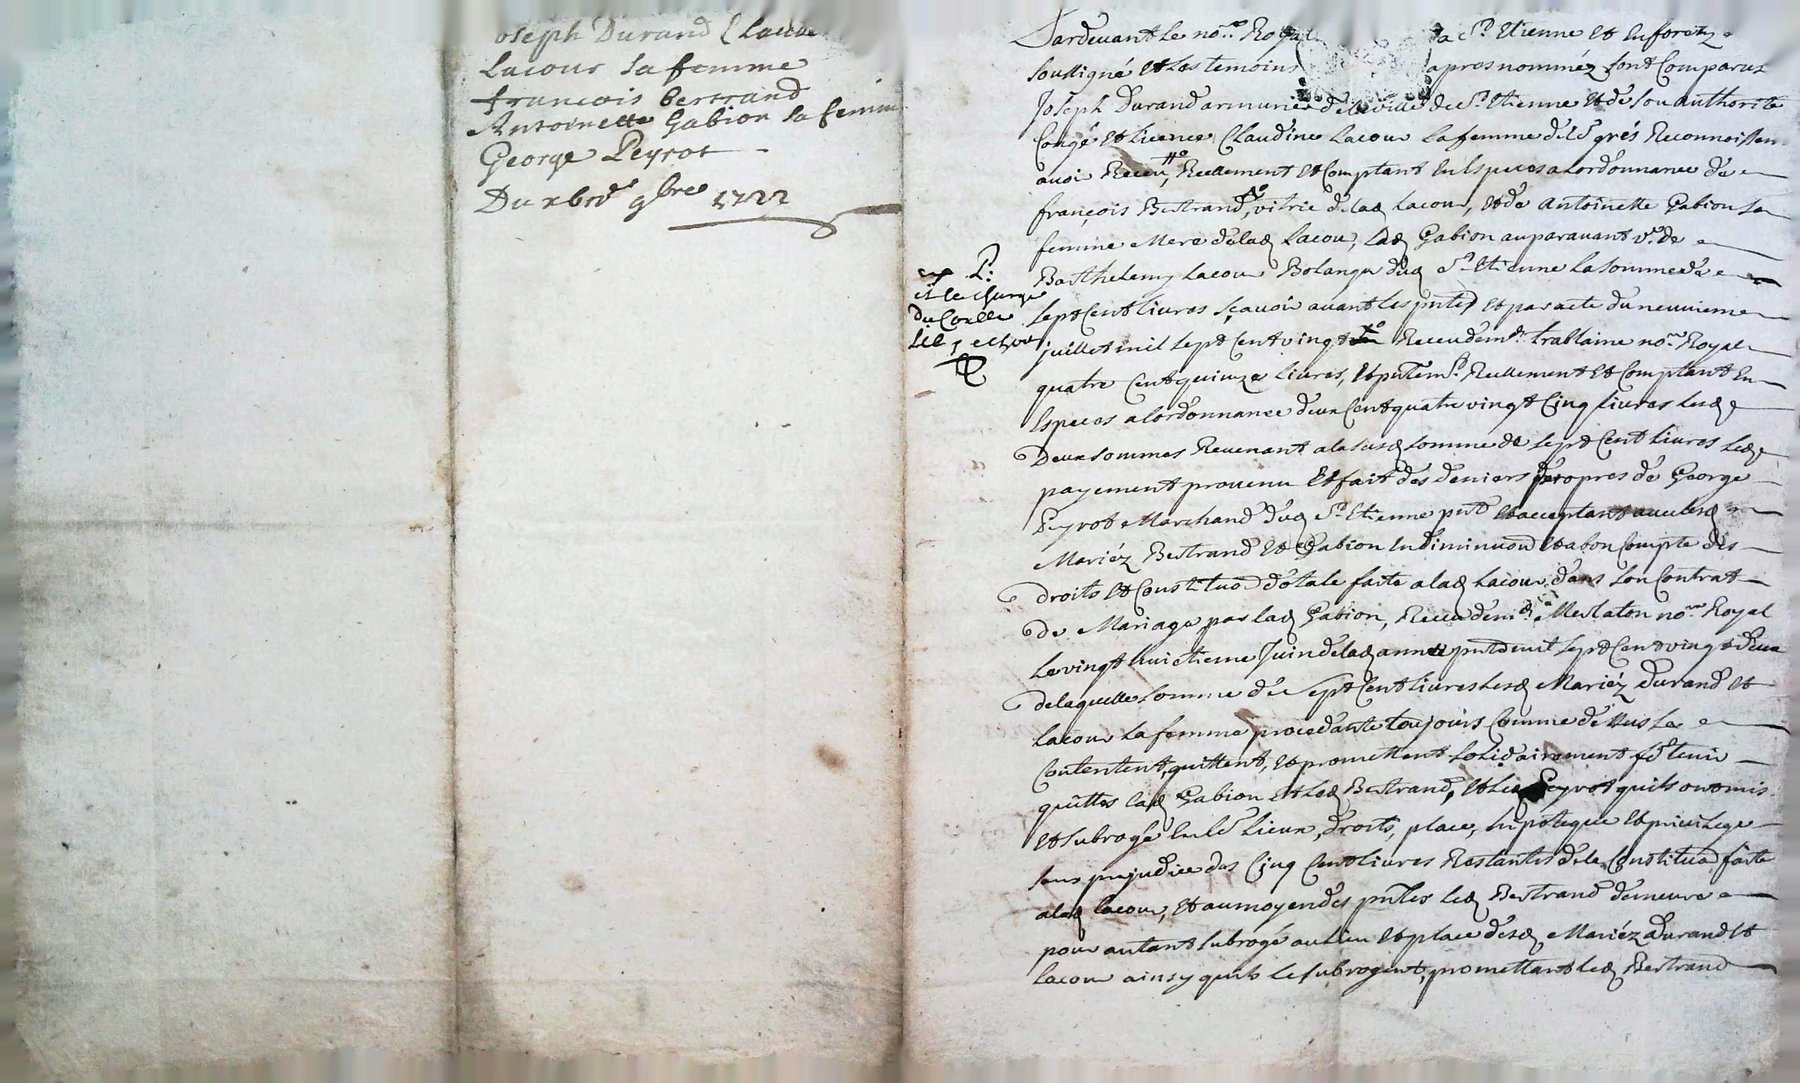 Joseph Durand Claud
Lacour sa femme
françois bertrand
Antoinette Gabion sa femme
George Peyrot
Du 9bre 1722
Pardevant le nore Royal a St Etienne et en foretz
soussigné et les temoins apres nomméz sont Comparus
Joseph Durand armurier de la ville de St Etienne et de son authorité
Congé et licence Claudine Lacour sa femme grés Reconnoissen
avoir Receu, Reellement et Comptant en Especes a lordonnance de
françois Bertrand, vitrie de lad Lacour, et de Antoinette Gabion sa
femme Mere de lad Lacour, Lad Gabion auparavant ve de
Barthelemy Lacour Bolanger dud St Etienne la somme de
sept Cent livres, sçavoir avant les pntes et par acte du neuvieme
juillet mil sept Cent vingt Receu de me trablaine nore Royal
quatre Cent quinze livres, et Reellement et Comptant En
Especes a lordonnance deux Cent quatre vingt Cinq livres lesd
Deux sommes Revenant a la susd somme de sept Cent livres led
payement provenu et fait des deniers propres de George
Peyrot Marchand dud St Etienne pnt et acceptant avec lesd
Mariéz Bertrand et Gabion En diminuon et a bon Compte des
droits et Constituon dotale faite a lad Lacour dans son Contrat
de Mariage par lad Gabion, Receu de me Merlaton nore Royal
Le vingt huictieme Juin de lad année pnte mil sept Cent vingt deux
de laquelle somme de sept Cent livres lesd Mariéz Durand et
Lacour sa femme procedante toujours Comme dessus se
Contentent, quittent, et promettent solidairement fe tenir
quittes lad Gabion et led Bertrand, et led Peyrot quils ont mis
et subrogé En lieux, droits, place, hipoteque et privilege
sans prejudice des Cinq Cent livres Restantes de la Constituon faite
a lad lacour, et au moyen des pntes led Bertrand demeure
pour autant subrogé au lieu et place desd Mariéz Durand et
Lacour ainsy quils le subrogent, promettant led Bertrand